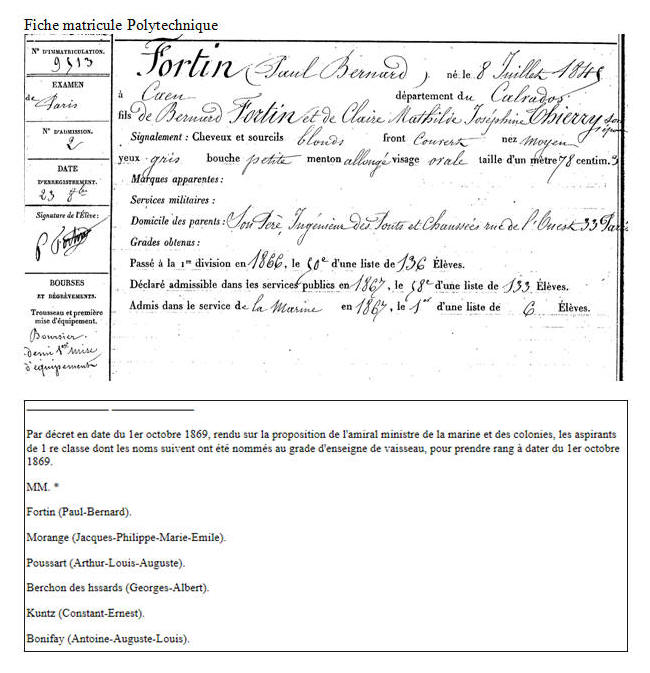 Fiche matricule Polytechnique
N° D'IMMATRICULATION.
9513
EXAMEN
de Paris
N° D'ADMISSION.
2
DATE
D'ENREGISTREMENT.
23 8bre
Signature de l'Élève:
P Fortin
BOURSES
ET DÉGRÈVEMENTS.
Trousseau et première
mise d'équipement.
Boursier
demi 1re mise
d'équipement
Fortin (Paul Bernard) né le 8 Juillet 1845
à Caen département du Calvados
fils de Bernard Fortin et de Claire Mathilde Joséphine Thierry son
Signalement : Cheveux et sourcils blonds front Couvert nez moyen
yeux gris bouche petite menton allongé visage ovale taille d'un mètre 78 centim.s
Marques apparentes :
Services militaires :
Domicile des parents : Son Père, Ingénieur des Ponts et Chaussées rue de l'Ouest 33 Paris
Grades obtenus :
Passé à la 1re division en 1866, le 50e d'une liste de 136 Élèves.
Déclaré admissible dans les services publics en 1867, le 58e d'une liste de 133 Élèves.
Admis dans le service de la Marine en 1867, le 1er d'une liste de 6 Élèves.
Par décret en date du 1er octobre 1869, rendu sur la proposition de l'amiral ministre de la marine et des colonies, les aspirants
de 1 re classe dont les noms suivent ont été nommés au grade d'enseigne de vaisseau, pour prendre rang à dater du 1er octobre
1869.
MM. *
Fortin (Paul-Bernard).
Morange (Jacques-Philippe-Marie-Emile).
Poussart (Arthur-Louis-Auguste).
Berchon des hssards (Georges-Albert).
Kuntz (Constant-Ernest).
Bonifay (Antoine-Auguste-Louis).